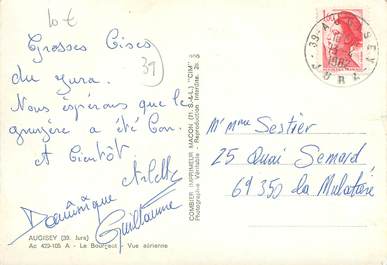 10 €
39
Grosses Bises
du Jura.
Nous espérons que le
gruyère a été bon.
A bientôt
Arlette
Dominique
Guillaume
AUGISEY (39. Jura)
Ac 429-105 A - Le Bourgeot - Vue aérienne
COMBIER IMPRIMEUR MACON (71. S.-&-L.) "CIM"
Photographie Véritable - Reproduction Interdite.
39-AUGISEY
1982
JURA
Mr Mme Sestier
25 Quai Semard
69350 la Mulatière